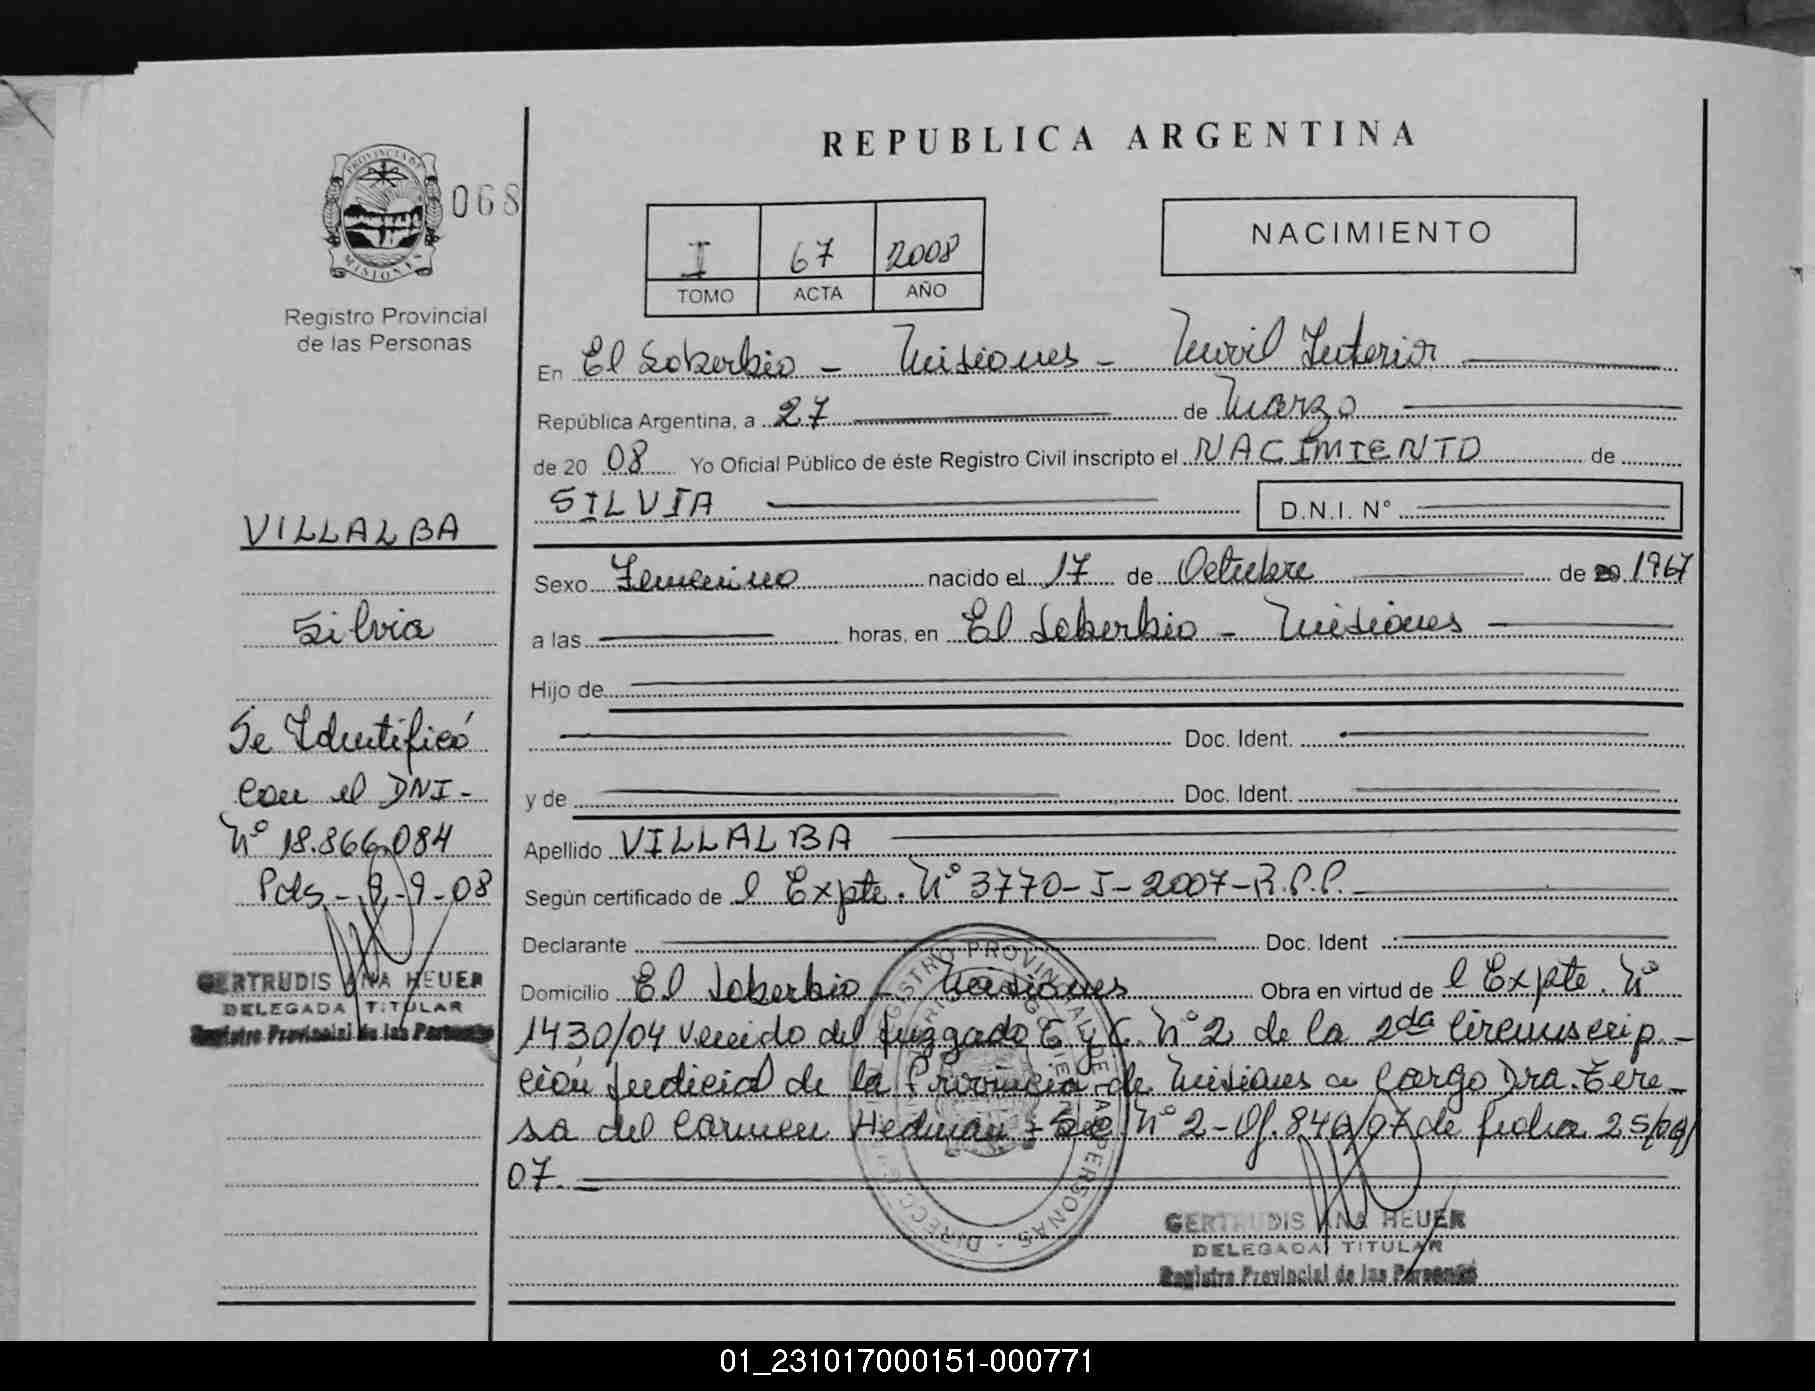 REPUBLICA ARGENTINA
PROVINCIA DE
MISIONES
068
Registro Provincial
de las Personas
I 67 2008
TOMO ACTA AÑO
NACIMIENTO
En El Soberbio - Misiones - Movil Interior
República Argentina, a 27 de Marzo
de 20 08 Yo Oficial Público de éste Registro Civil inscripto el NACIMIENTO de
SILVIA D.N.I. N°
Sexo Femenino nacido el 17 de Octubre de 20 1967
a las horas, en El Soberbio - Misiones
Hijo de
Doc. Ident.
y de Doc. Ident.
Apellido VILLALBA
Según certificado de l Expte. N° 3770-I-2007-R.P.P.
Declarante Doc. Ident
Domicilio El Soberbio - Misiones Obra en virtud de l Expte. N°
1430/04 venido del Juzgado C y C. N° 2 de la 2da Circunscrip-
ción Judicial de la Provincia de Misiones a Cargo Dra. Tere-
sa del Carmen Hedman - Sec N° 2-Of. 846/07 de fecha 25/06/
07.
VILLALBA
Silvia
Se Identificó
con el DNI-
N° 18.866.084
Pdas - 9-9-08
GERTRUDIS ANA HEUER
DELEGADA TITULAR
Registro Provincial de las Personas
REGISTRO PROVINCIAL DE LAS PERSONAS - DIRECC
GERTRUDIS ANA HEUER
DELEGADA TITULAR
Registro Provincial de las Personas
01_231017000151-000771